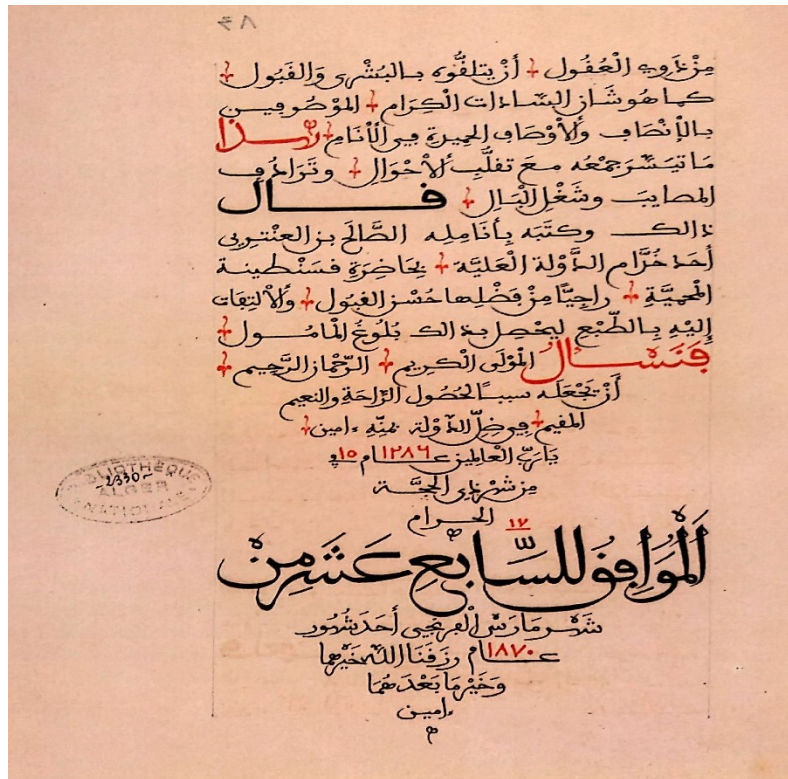 مِن ذوي الْعُقُول أنْ يتلقَّوه بالبُشْرى وَالقَبُول
كما هُو شَان السَّادَات الْكِرَام المَوْصُوفِين
بالإنْصَاف والأوْصَاف الحميدة في الأنَام هذا
مَا تيَسَّرَ جمْعُه معَ تقلُّبِ الأحْوَال وتَرَادُف
المصايب وشَغْلِ الْبَال قال
ذالك وكتَبَه بأنَامِلِه الصَّالَح بن العنْتري
أحَد خُدَّام الدَّوْلة الْعَليَّة بحَاضِرَة قسَنْطينة
المْحميَّة راجيًا مِنْ فَضْلِها حُسْن القبُول والالتِفَات
إليْهِ بالطَّبْع ليحْصل بذالك بُلُوغُ الْمَامُول
فنسال المَوْلَى الْكريم الرَّحْمان الرَّحيم
أنْ يَجْعَلَه سببًا لحُصُول الرَّاحَة والنعيم
المقيم في ظلّ الدَّوْلة بمَنِّهِ ءامين
يَا رَبّ الْعَالمِين عام ١٢٨٦ ١٥
مِن شهْر ذي الحجَّة
الحرام
١٧
الْمُوَافِق للسَّابعِ عَشَر مِنْ
شهر مَارس الْفرنجي أحَد شُهُور
عام ١٨٧٠ رزَقنَا اللهُ خَيْرهمَا
وَخَيْر مَا بَعْدهُمَا
ءامين
BIBLIOTHÈQUE
2330
ALGER
NATIONALE